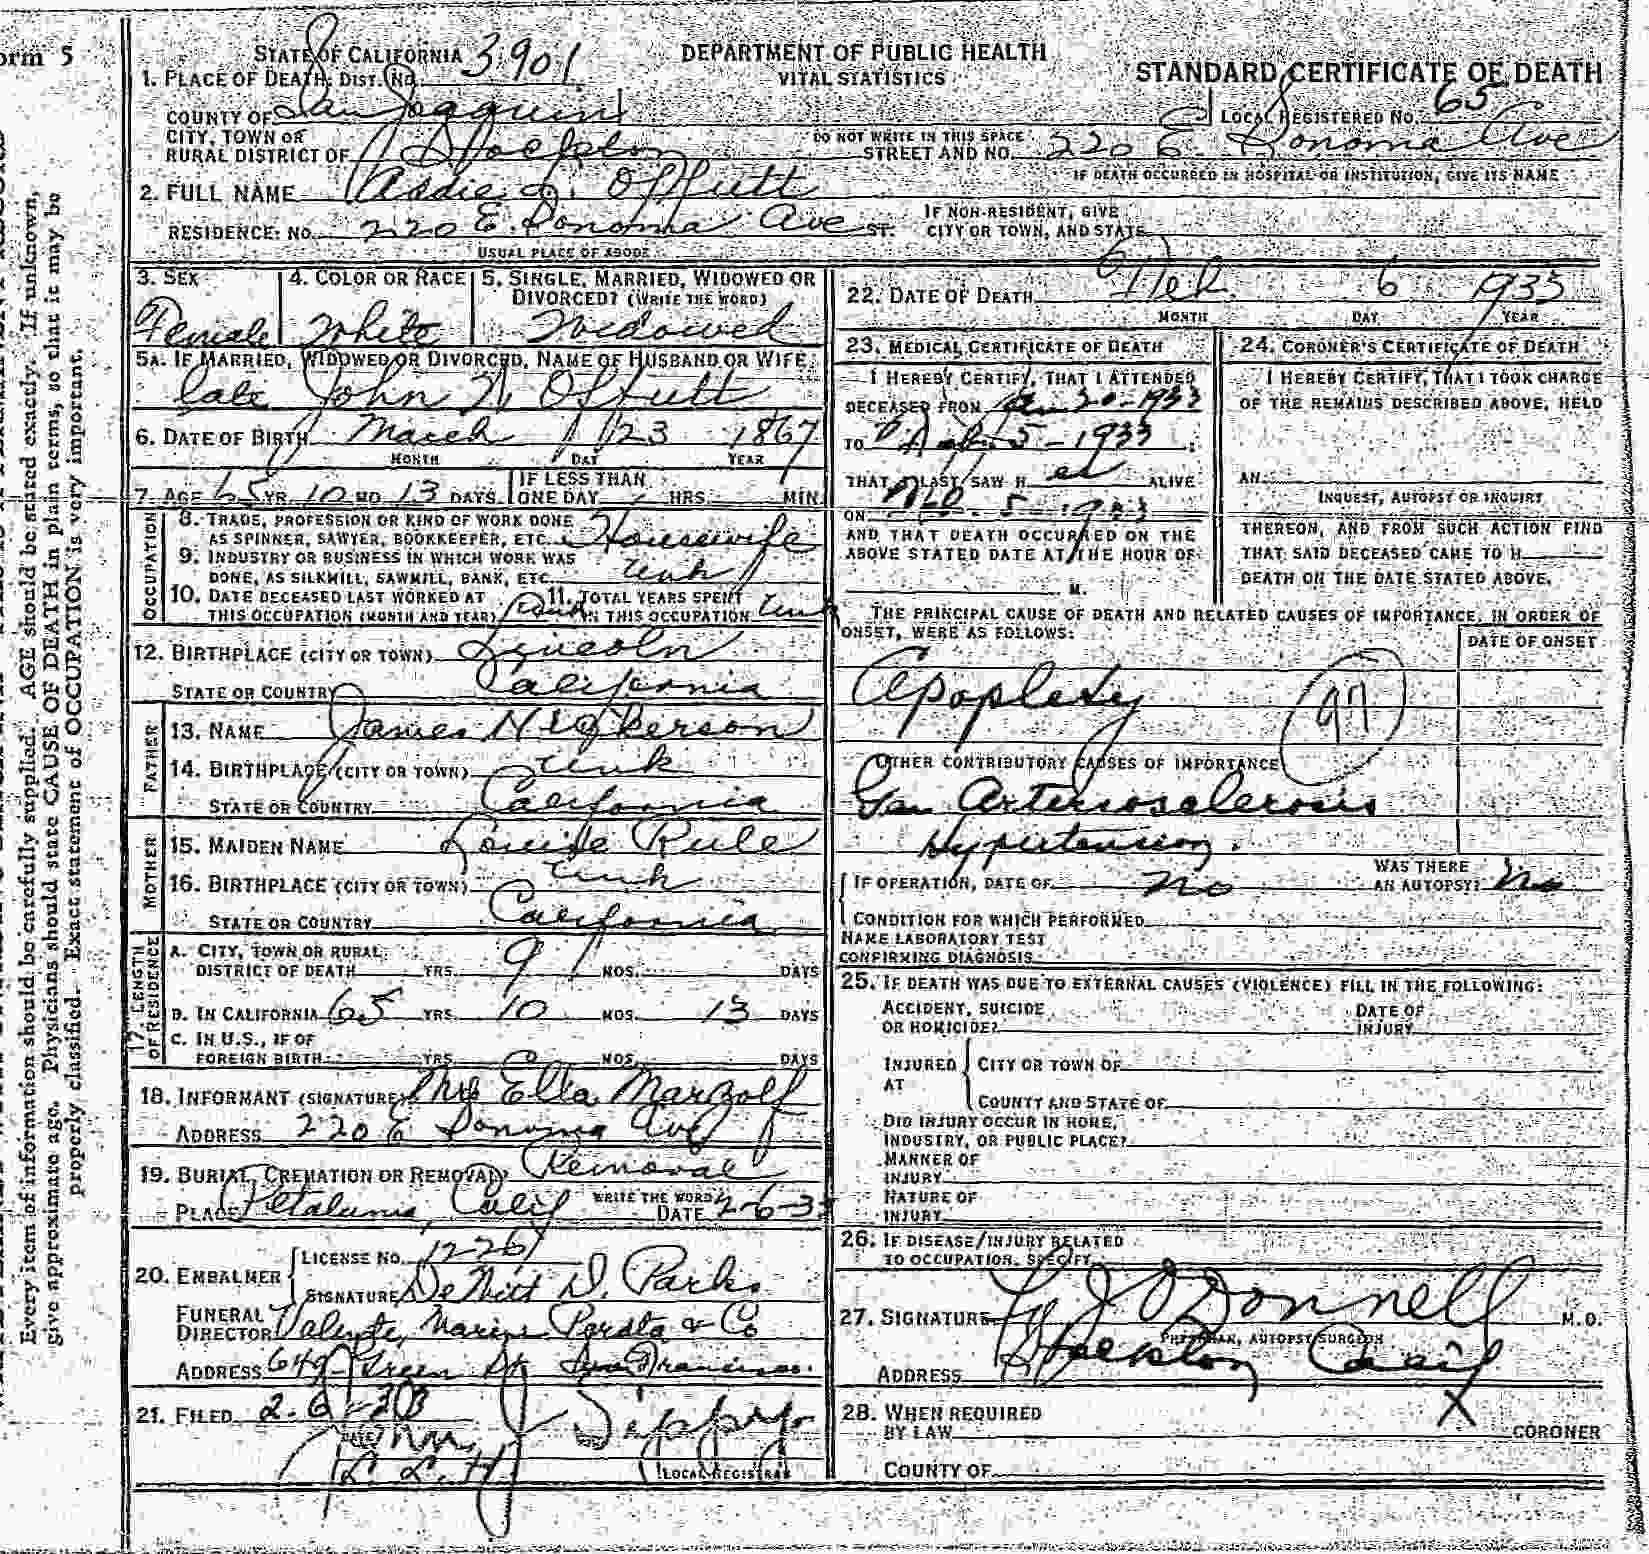 orm 5
STATE OF CALIFORNIA
DEPARTMENT OF PUBLIC HEALTH
VITAL STATISTICS
STANDARD CERTIFICATE OF DEATH
1. PLACE OF DEATH: DIST. NO. 3901
LOCAL REGISTERED NO. 65
COUNTY OF San Joaquin
CITY, TOWN OR
RURAL DISTRICT OF Stockton
DO NOT WRITE IN THIS SPACE
STREET AND NO. 220 E. Sonoma Ave
IF DEATH OCCURRED IN HOSPITAL OR INSTITUTION, GIVE ITS NAME
2. FULL NAME Addie L. Offutt
RESIDENCE: NO. 220 E. Sonoma Ave ST.
USUAL PLACE OF ABODE
IF NON-RESIDENT, GIVE
CITY OR TOWN, AND STATE
3. SEX Female
4. COLOR OR RACE White
5. SINGLE, MARRIED, WIDOWED OR
DIVORCED? (WRITE THE WORD)
Widowed
5A. IF MARRIED, WIDOWED OR DIVORCED, NAME OF HUSBAND OR WIFE
late John W. Offutt
6. DATE OF BIRTH March 23 1867
MONTH DAY YEAR
7. AGE 65 YR. 10 MO. 13 DAYS.
IF LESS THAN
ONE DAY HRS. MIN.
OCCUPATION
8. TRADE, PROFESSION OR KIND OF WORK DONE
AS SPINNER, SAWYER, BOOKKEEPER, ETC. Housewife
9. INDUSTRY OR BUSINESS IN WHICH WORK WAS
DONE, AS SILKMILL, SAWMILL, BANK, ETC. Unk
10. DATE DECEASED LAST WORKED AT
THIS OCCUPATION (MONTH AND YEAR) Unk
11. TOTAL YEARS SPENT
IN THIS OCCUPATION Unk
12. BIRTHPLACE (CITY OR TOWN) Lincoln
STATE OR COUNTRY California
FATHER
13. NAME James Nickerson
14. BIRTHPLACE (CITY OR TOWN) Unk
STATE OR COUNTRY California
MOTHER
15. MAIDEN NAME Louise Rule
16. BIRTHPLACE (CITY OR TOWN) Unk
STATE OR COUNTRY California
17. LENGTH
OF RESIDENCE
A. CITY, TOWN OR RURAL
DISTRICT OF DEATH YRS. 9 MOS. DAYS
B. IN CALIFORNIA 65 YRS. 10 MOS. 13 DAYS
C. IN U.S., IF OF
FOREIGN BIRTH YRS. 0 MOS. DAYS
18. INFORMANT (SIGNATURE) Mrs Ella Margolf
ADDRESS 220 E Sonoma Ave
19. BURIAL, CREMATION OR REMOVAL? Removal
WRITE THE WORD
PLACE Petaluma, Calif DATE 2-6-33
20. EMBALMER
LICENSE NO. 1226
SIGNATURE DeWitt D. Parks
FUNERAL
DIRECTOR Valente, Marini Perata & Co
ADDRESS 649 Green St San Francisco
21. FILED 2-6-33
DATE
John J Sippy
L. L. H
LOCAL REGISTRAR
22. DATE OF DEATH Feb. 6 1933
MONTH DAY YEAR
23. MEDICAL CERTIFICATE OF DEATH
I HEREBY CERTIFY, THAT I ATTENDED
DECEASED FROM Jan 30-1933
TO Feb 5-1933
THAT I LAST SAW H er ALIVE
ON Feb. 5-1933
AND THAT DEATH OCCURRED ON THE
ABOVE STATED DATE AT THE HOUR OF
M.
24. CORONER'S CERTIFICATE OF DEATH
I HEREBY CERTIFY, THAT I TOOK CHARGE
OF THE REMAINS DESCRIBED ABOVE, HELD
AN
INQUEST, AUTOPSY OR INQUIRY
THEREON, AND FROM SUCH ACTION FIND
THAT SAID DECEASED CAME TO H
DEATH ON THE DATE STATED ABOVE.
THE PRINCIPAL CAUSE OF DEATH AND RELATED CAUSES OF IMPORTANCE, IN ORDER OF
ONSET, WERE AS FOLLOWS:
DATE OF ONSET
Apoplexy
97
OTHER CONTRIBUTORY CAUSES OF IMPORTANCE
Gen Arteriosclerosis
Hypertension.
IF OPERATION, DATE OF no
WAS THERE
AN AUTOPSY? no
CONDITION FOR WHICH PERFORMED
NAME LABORATORY TEST
CONFIRMING DIAGNOSIS
25. IF DEATH WAS DUE TO EXTERNAL CAUSES (VIOLENCE) FILL IN THE FOLLOWING:
ACCIDENT, SUICIDE
OR HOMICIDE?
DATE OF
INJURY
INJURED
AT
CITY OR TOWN OF
COUNTY AND STATE OF
DID INJURY OCCUR IN HOME,
INDUSTRY, OR PUBLIC PLACE?
MANNER OF
INJURY
NATURE OF
INJURY
26. IF DISEASE/INJURY RELATED
TO OCCUPATION, SPECIFY
27. SIGNATURE J O'Donnell M.D.
PHYSICIAN, AUTOPSY SURGEON
ADDRESS Stockton Calif
28. WHEN REQUIRED
BY LAW X CORONER
COUNTY OF
Every item of information should be carefully supplied. AGE should be stated exactly. If unknown,
give approximate age. Physicians should state CAUSE OF DEATH in plain terms, so that it may be
properly classified. Exact statement of OCCUPATION is very important.